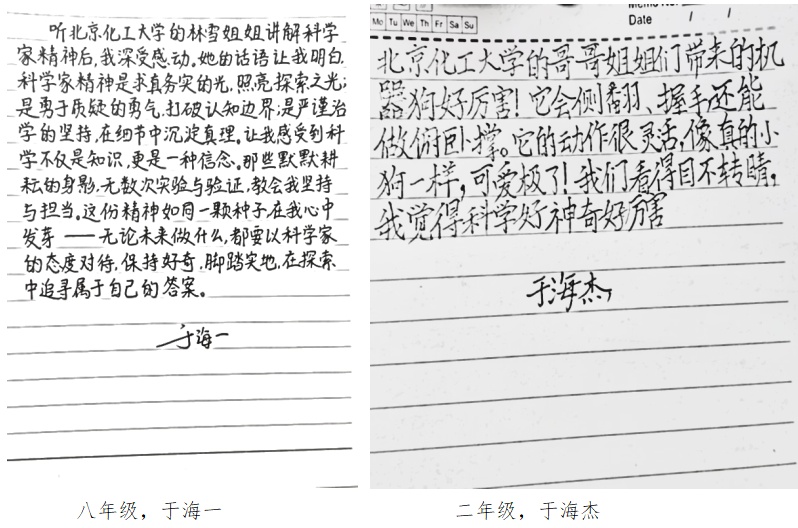 听北京化工大学的林雪姐姐讲解科学
家精神后，我深受感动。她的话语让我明白
科学家精神是求真务实的光，照亮探索之光；
是勇于质疑的勇气，打破认知边界；是严谨治
学的坚持，在细节中沉淀真理。让我感受到科
学不仅是知识，更是一种信念。那些默默耕
耘的身影，无数次实验与验证，教会我坚持
与担当。这份精神如同一颗种子在我心中
发芽——无论未来做什么，都要以科学家
的态度对待，保持好奇，脚踏实地，在探索
中追寻属于自己的答案。
于海一
Mo Tu We Th Fr Sa Su
Memo No.
Date / /
北京化工大学的哥哥姐姐们带来的机
器狗好厉害！它会侧翻、握手还能
做俯卧撑。它的动作很灵活，像真的小
狗一样，可爱极了！我们看得目不转睛，
我觉得科学好神奇好厉害
于海杰
八年级，于海一
二年级，于海杰